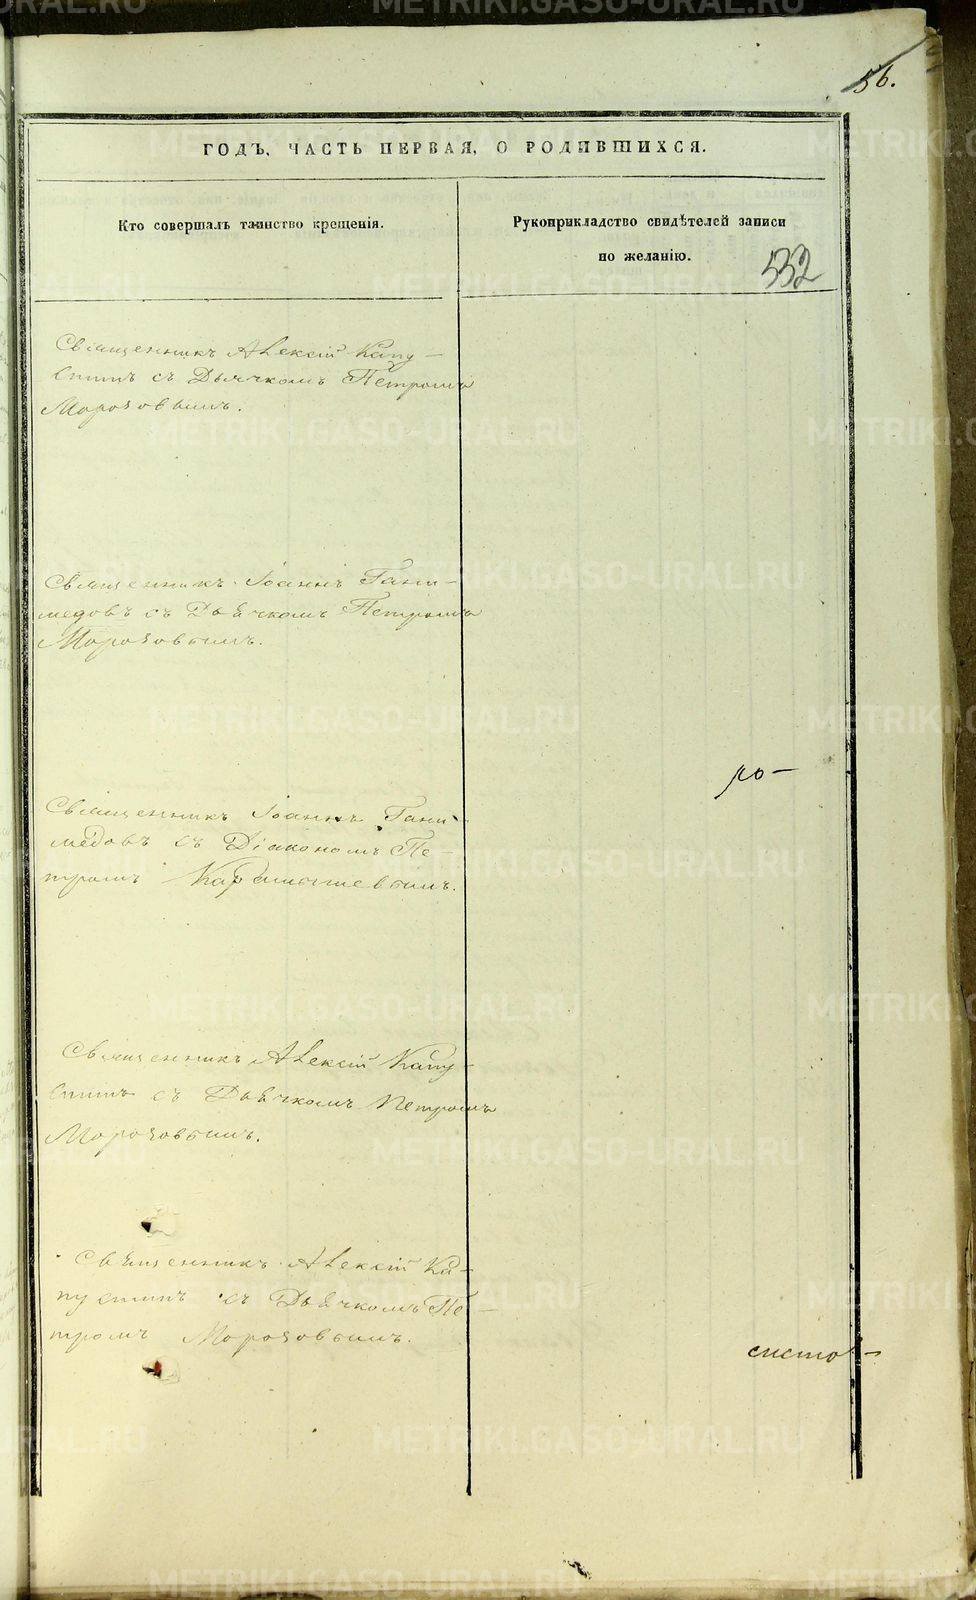 56.
ГОДЪ, ЧАСТЬ ПЕРВАЯ, О РОДИВШИХСЯ.
Кто совершалъ таинство крещенія.
Рукоприкладство свидѣтелей записи
по желанію.
532
Священникъ Алексій Капу-
стинъ съ Дьячкомъ Петромъ
Морозовымъ.
Священникъ Іоаннъ Гани-
медовъ съ Дьячкомъ Петромъ
Морозовымъ.
ро-
Священникъ Іоаннъ Гани-
медовъ съ Діакономъ Пе-
тромъ
Священникъ Алексій Капу-
стинъ съ Дьячкомъ Петромъ
Морозовымъ.
Священникъ Алексій Ка-
пустинъ съ Дьячкомъ Пе-
тромъ Морозовымъ.
листо-
METRIKI.GASO-URAL.RU